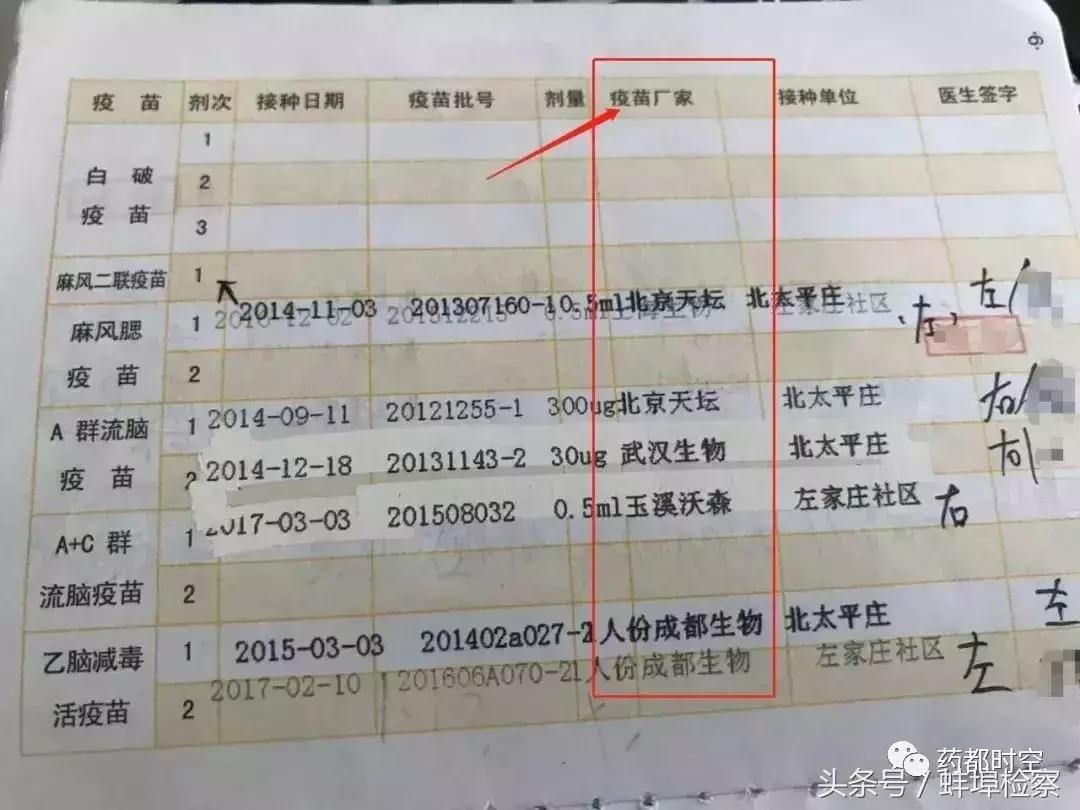 9
疫 苗 剂次 接种日期 疫苗批号 剂量 疫苗厂家 接种单位 医生签字
白 破
疫 苗
1
2
3
麻风二联疫苗 1
麻风腮
疫 苗
1 2014-11-03 201307160-1 0.5ml 北京天坛 北太平庄 左
左家庄社区 左
2
A 群流脑
疫 苗
1 2014-09-11 20121255-1 300ug 北京天坛 北太平庄 右
2 2014-12-18 20131143-2 30ug 武汉生物 北太平庄 右
A+C 群
流脑疫苗
1 2017-03-03 201508032 0.5ml 玉溪沃森 左家庄社区 右
2
乙脑减毒
活疫苗
1 2015-03-03 201402a027-2 1人份 成都生物 北太平庄 左
2 2017-02-10 201606A070-2 1人份 成都生物 左家庄社区 左
药都时空
头条号 / 蚌埠检察